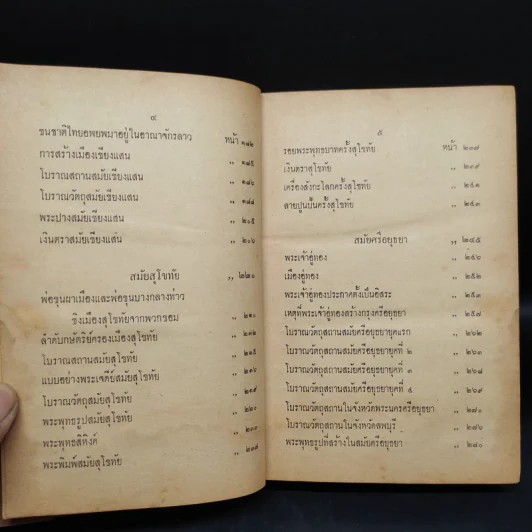 ๔
ชนชาติไทยอพยพมาอยู่ในอาณาจักรลาว หน้า ๑๗๒
การสร้างเมืองเชียงแสน ,, ๑๗๕
โบราณสถานสมัยเชียงแสน ,, ๑๗๖
โบราณวัตถุสมัยเชียงแสน ,, ๑๘๘
พระปางสมัยเชียงแสน ,, ๒๐๕
เงินตราสมัยเชียงแสน ,, ๒๐๖
สมัยสุโขทัย
พ่อขุนผาเมืองและพ่อขุนบางกลางท่าว
ชิงเมืองสุโขทัยจากพวกขอม ,, ๒๑๐
ลำดับกษัตริย์ครองเมืองสุโขทัย ,, ๒๑๒
โบราณสถานสมัยสุโขทัย ,, ๒๑๕
แบบอย่างพระเจดีย์สมัยสุโขทัย ,, ๒๑๖
โบราณวัตถุสมัยสุโขทัย ,, ๒๑๙
พระพุทธรูปสมัยสุโขทัย ,, ๒๒๐
พระพุทธสิหิงค์
พระพิมพ์สมัยสุโขทัย
๕
รอยพระพุทธบาทครั้งสุโขทัย หน้า ๒๓๗
เงินตราสุโขทัย ,, ๒๓๙
เครื่องสังคะโลกครั้งสุโขทัย ,, ๒๔๑
ลายปูนปั้นครั้งสุโขทัย ,, ๒๔๓
สมัยศรีอยุธยา ,, ๒๔๕
พระเจ้าอู่ทอง ,, ๒๔๖
เมืองอู่ทอง ,, ๒๕๒
พระเจ้าอู่ทองประกาศตั้งเป็นอิสระ ,, ๒๕๓
เหตุที่พระเจ้าอู่ทองสร้างกรุงศรีอยุธยา ,, ๒๕๗
โบราณวัตถุสถานสมัยศรีอยุธยายุคแรก ,, ๒๖๒
โบราณวัตถุสถานสมัยศรีอยุธยายุคที่ ๒ ,, ๒๖๓
โบราณวัตถุสถานสมัยศรีอยุธยายุคที่ ๓ ,, ๒๖๘
โบราณวัตถุสถานสมัยศรีอยุธยายุคที่ ๔ ,, ๒๖๙
โบราณวัตถุสถานในจังหวัดพระนครศรีอยุธยา ,, ๒๗๐
โบราณวัตถุสถานในจังหวัดลพบุรี ,, ๒๗๖
พระพุทธรูปที่สร้างในสมัยศรีอยุธยา